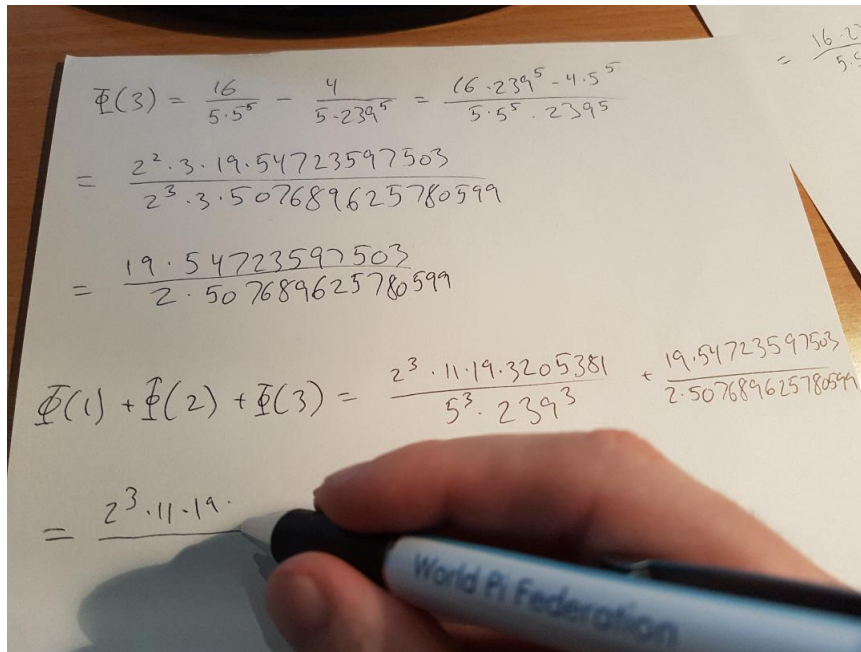 Φ(3) = 16/(5·5⁵) - 4/(5·239⁵) = (16·239⁵ - 4·5⁵)/(5·5⁵·239⁵)
= (2²·3·19·54723597503)/(2³·3·507689625780599)
= (19·54723597503)/(2·507689625780599)
Φ(1) + Φ(2) + Φ(3) = (2³·11·19·3205381)/(5³·239³) + (19·54723597503)/(2·507689625780599)
= 2³·11·19·
World Pi Federation